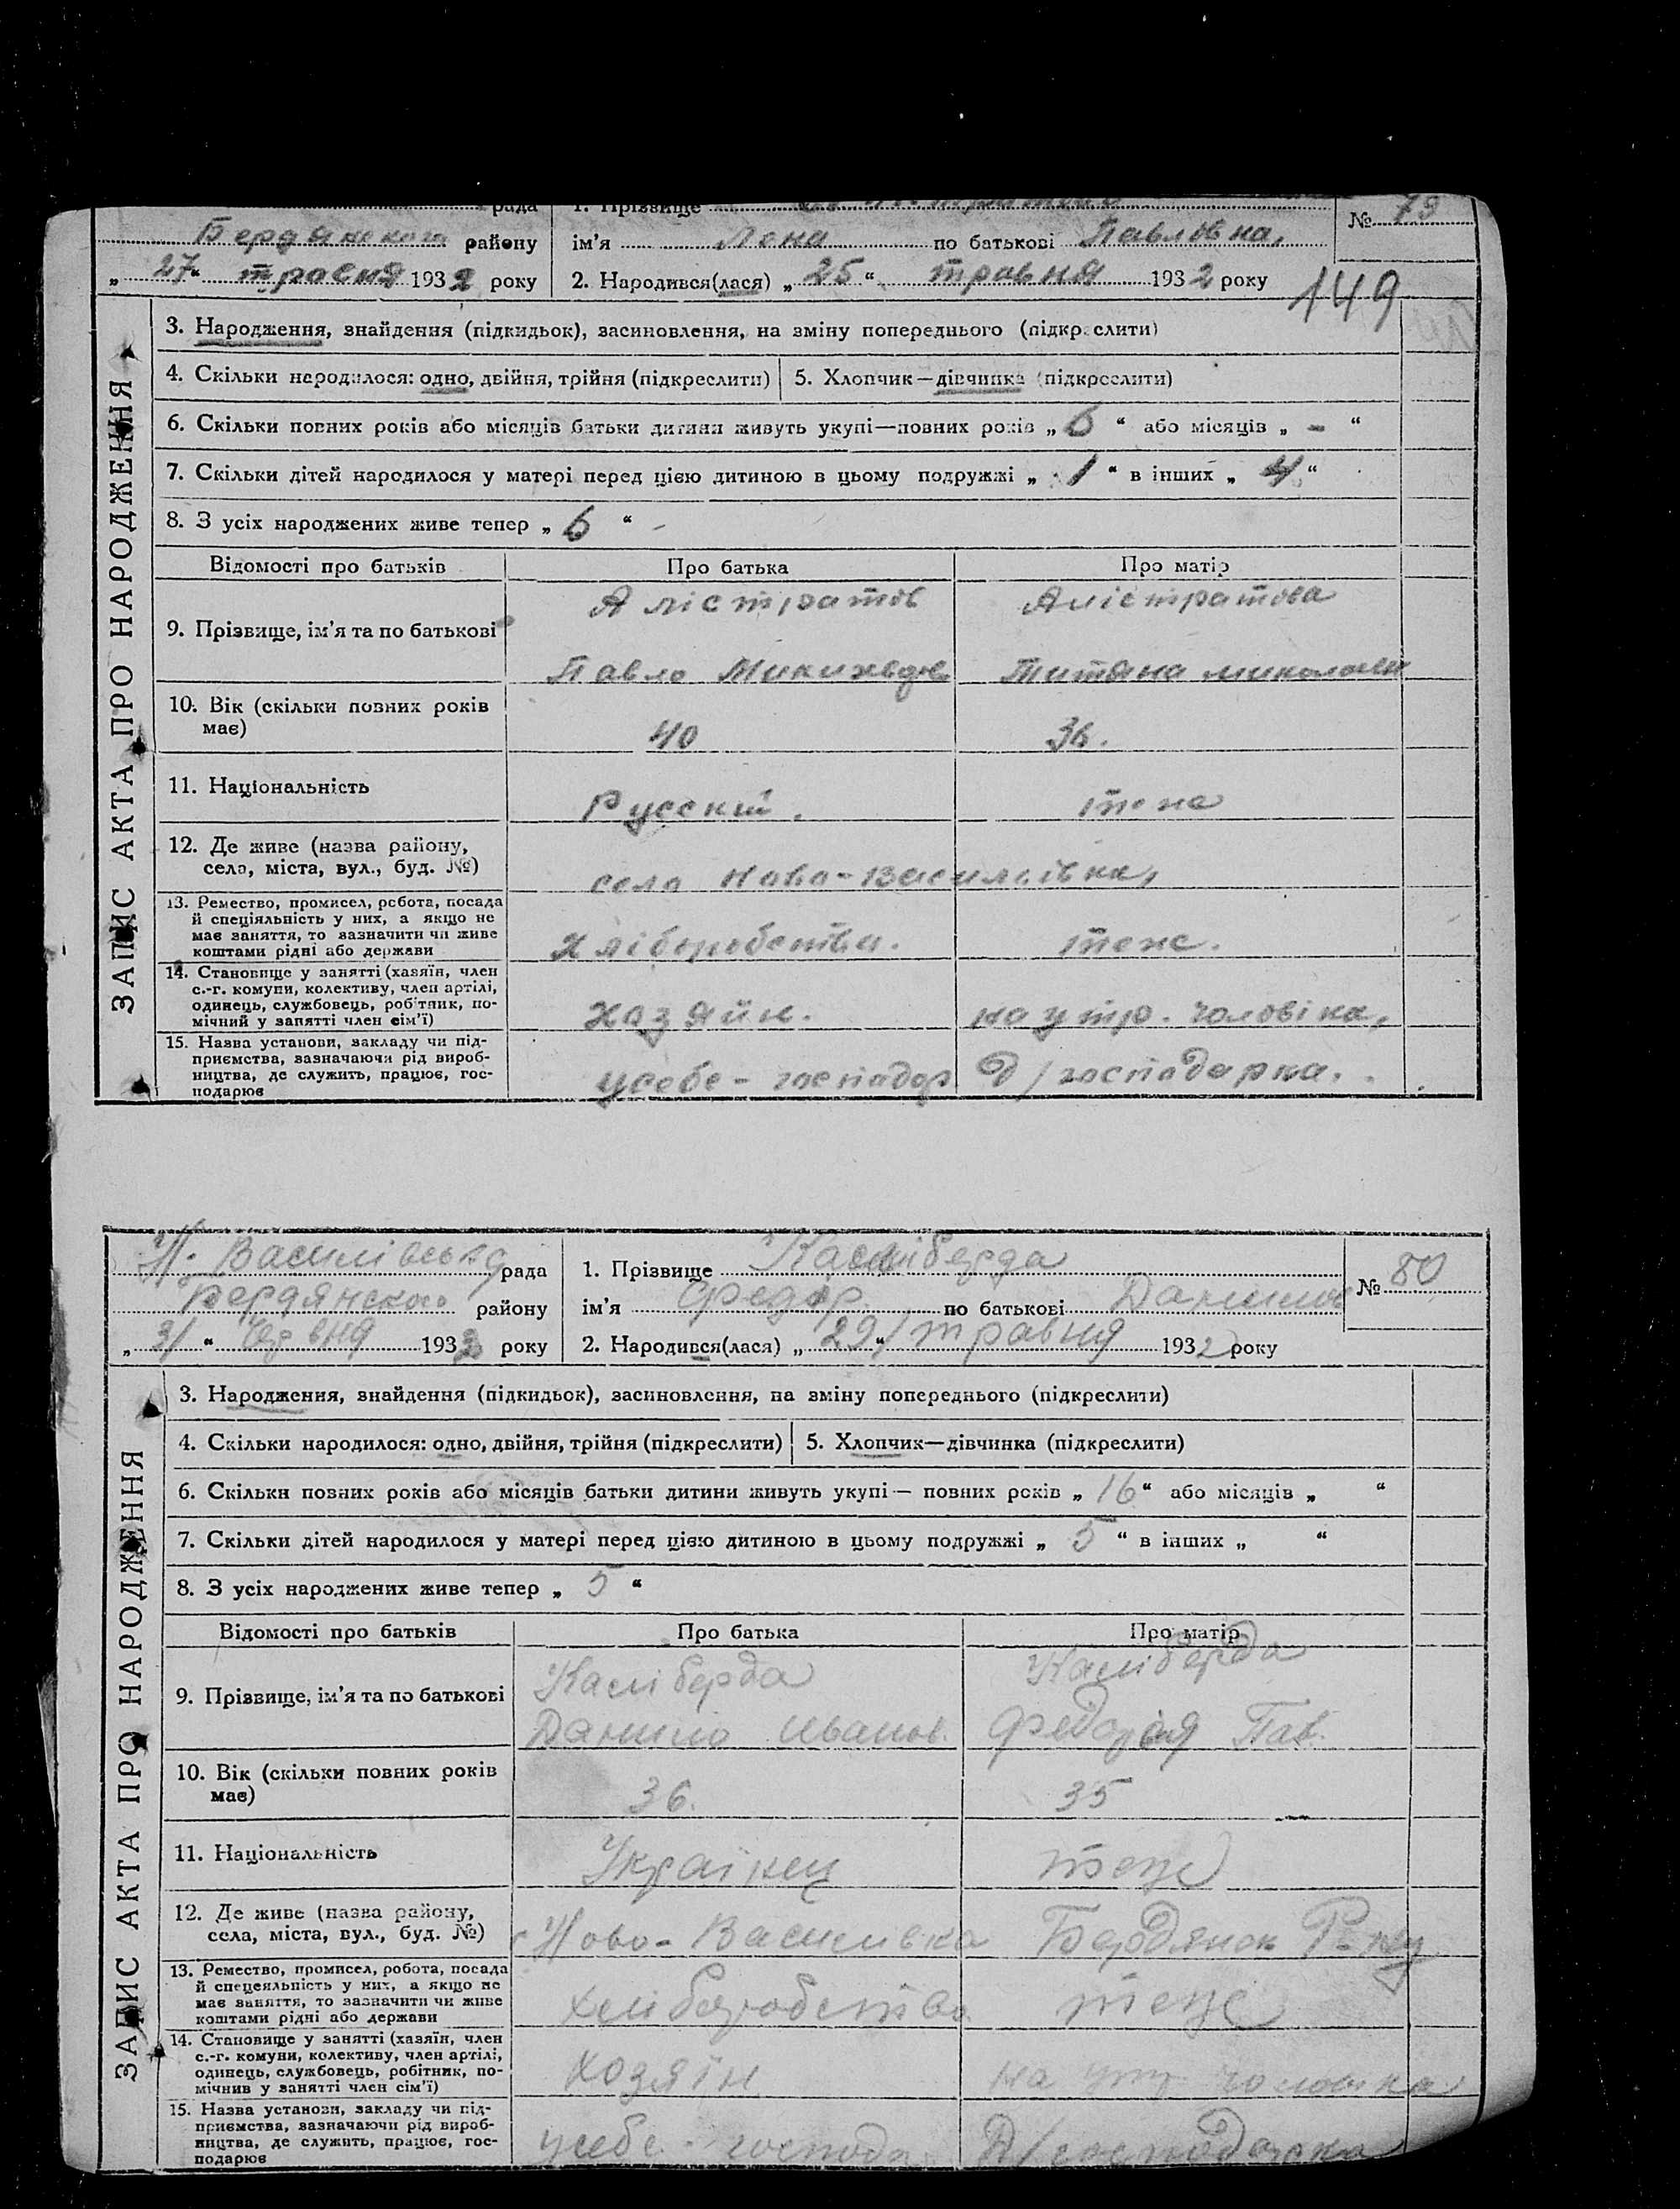 рада 1. Прізвище № 79
Бердянского району ім'я Лена по батькові Павловна,
„ 27 “ травня 1932 року 2. Народився(лася) „ 25 “ травня 1932 року
149
ЗАПИС АКТА ПРО НАРОДЖЕННЯ
3. Народження, знайдення (підкидьок), засиновлення, на зміну попереднього (підкреслити)
4. Скільки народилося: одно, двійня, трійня (підкреслити) 5. Хлопчик—дівчинка (підкреслити)
6. Скільки повних років або місяців батьки дитини живуть укупі—повних років „ 6 “ або місяців „ - “
7. Скільки дітей народилося у матері перед цією дитиною в цьому подружжі „ 1 “ в інших „ 4 “
8. З усіх народжених живе тепер „ 6 “ -
Відомості про батьків Про батька Про матір
Алістратов Алістратова
9. Прізвище, ім'я та по батькові
Павло Титяна
10. Вік (скільки повних років
має) 40 36.
11. Національність Русский. тоже
12. Де живе (назва району,
села, міста, вул., буд. №) село Ново-Василівка,
13. Ремество, промисел, робота, посада
й спеціяльність у них, а якщо не
має заняття, то зазначити чи живе
коштами рідні або держави Хліборобство. тоже.
14. Становище у занятті (хазяїн, член
с.-г. комуни, колективу, член артілі,
одинець, службовець, робітник, по-
мічний у занятті член сім'ї) хазяйн. на утр. чоловіка,
15. Назва установи, закладу чи під-
приємства, зазначаючи рід вироб-
ництва, де служить, працює, гос-
подарює усебе - господар Д/господарка.
Н. Василівська рада 1. Прізвище Каліберда № 80
Бердянского району ім'я Федор по батькові Данилов
„ 3/ “ червня 1932 року 2. Народився(лася) „ 29/“ травня 1932 року
ЗАПИС АКТА ПРО НАРОДЖЕННЯ
3. Народження, знайдення (підкидьок), засиновлення, на зміну попереднього (підкреслити)
4. Скільки народилося: одно, двійня, трійня (підкреслити) 5. Хлопчик—дівчинка (підкреслити)
6. Скільки повних років або місяців батьки дитини живуть укупі — повних років „ 16 “ або місяців „ “
7. Скільки дітей народилося у матері перед цією дитиною в цьому подружжі „ 5 “ в інших „ “
8. З усіх народжених живе тепер „ 5 “
Відомості про батьків Про батька Про матір
Каліберда Каліберда
9. Прізвище, ім'я та по батькові
Данило Иванов. Пав.
10. Вік (скільки повних років
має) 36. 35
11. Національність Українец тоже
12. Де живе (назва району,
села, міста, вул., буд. №) Ново-Василівка Бердянск
13. Ремество, промисел, робота, посада
й спецеяльність у них, а якщо не
має заняття, то зазначити чи живе
коштами рідні або держави хліборобство тоже
14. Становище у занятті (хазяїн, член
с.-г. комуни, колективу, член артілі,
одинець, службовець, робітник, по-
мічнив у занятті член сім'ї) хозяїн на утр чоловіка
15. Назва установи, закладу чи під-
приємства, зазначаючи рід вироб-
ництва, де служить, працює, гос-
подарює усебе - господа Д/господарка